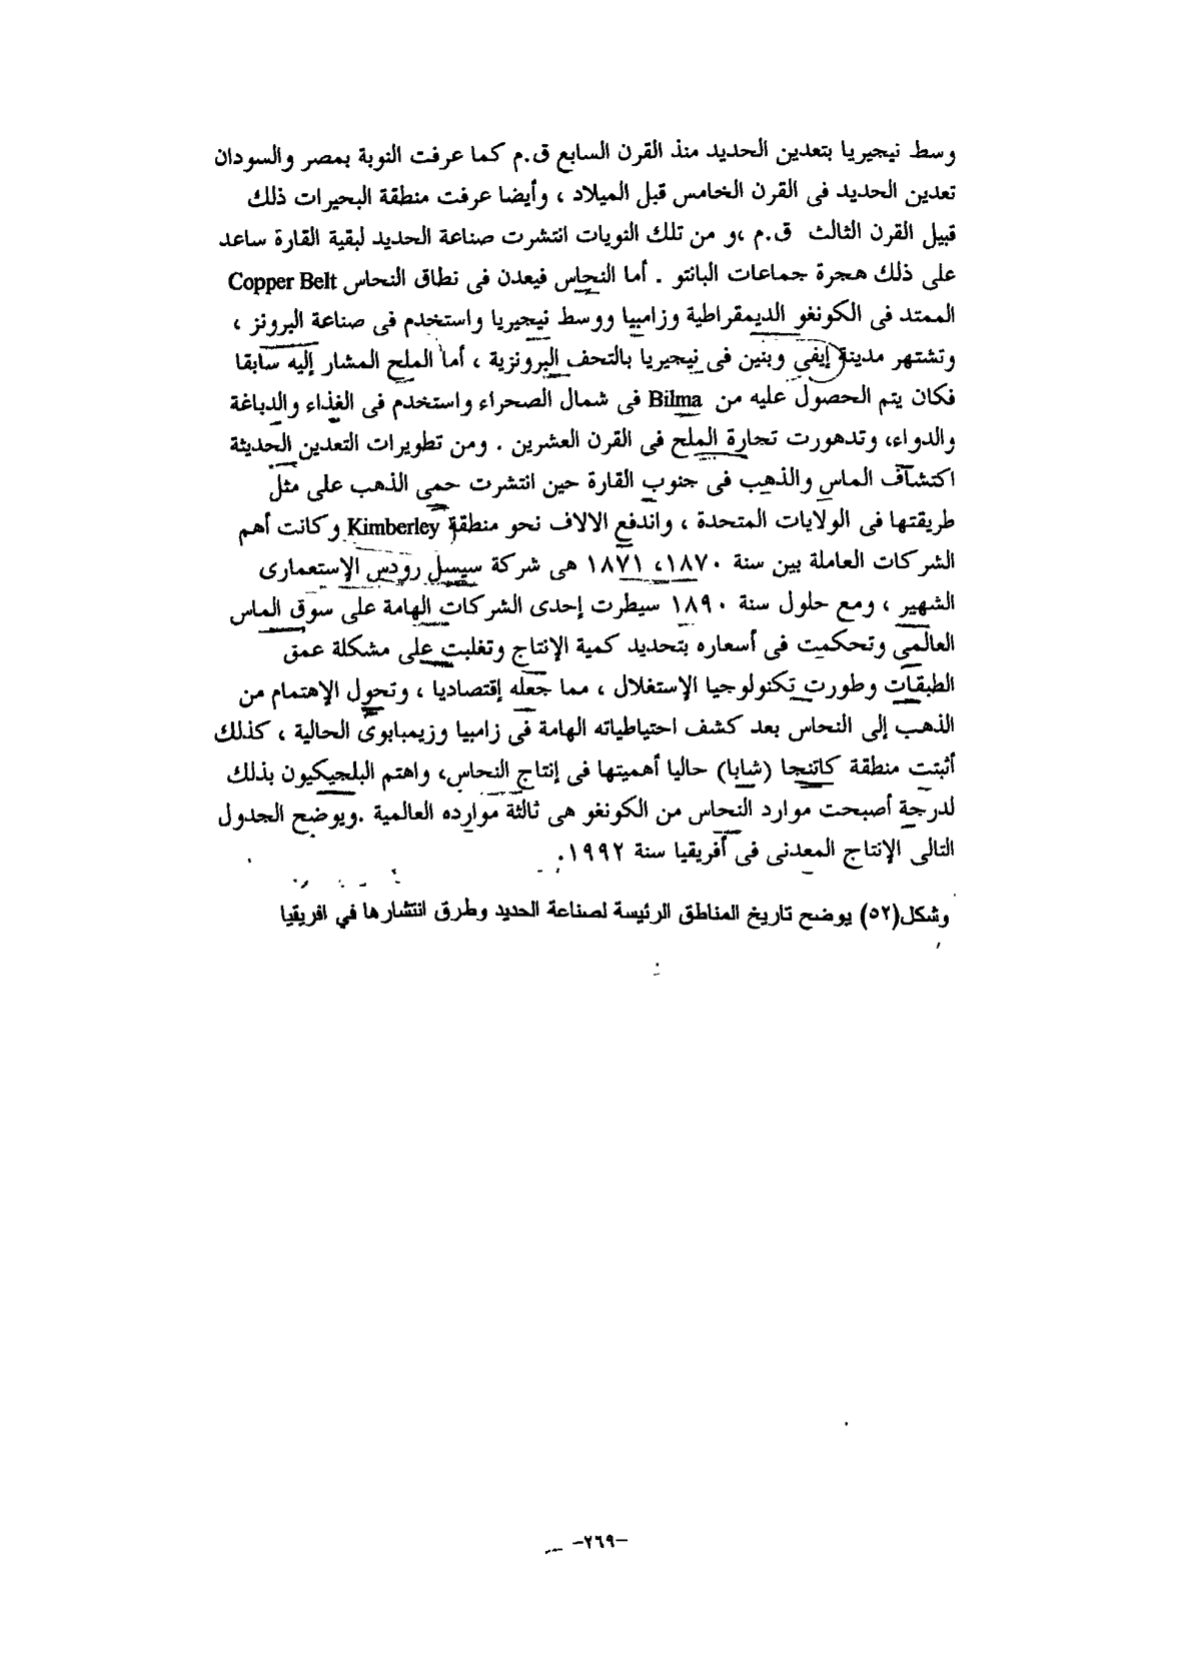 وسط نيجيريا بتعدين الحديد منذ القرن السابع ق.م كما عرفت النوبة بمصر والسودان
تعدين الحديد فى القرن الخامس قبل الميلاد ، وأيضا عرفت منطقة البحيرات ذلك
قبيل القرن الثالث ق.م ،و من تلك النويات انتشرت صناعة الحديد لبقية القارة ساعد
على ذلك هجرة جماعات البانتو . أما النحاس فيعدن فى نطاق النحاس Copper Belt
الممتد فى الكونغو الديمقراطية وزامبيا ووسط نيجيريا واستخدم فى صناعة البرونز ،
وتشتهر مدينة إيفي وبنين فى نيجيريا بالتحف البرونزية ، أما الملح المشار إليه سابقا
فكان يتم الحصول عليه من Bilma فى شمال الصحراء واستخدم فى الغذاء والدباغة
والدواء، وتدهورت تجارة الملح فى القرن العشرين . ومن تطويرات التعدين الحديثة
اكتشاف الماس والذهب فى جنوب القارة حين انتشرت حمى الذهب على مثل
طريقتها فى الولايات المتحدة ، واندفع الالاف نحو منطقة Kimberley وكانت أهم
الشركات العاملة بين سنة ١٨٧٠، ١٨٧١ هى شركة سيسل رودس الإستعمارى
الشهير ، ومع حلول سنة ١٨٩٠ سيطرت إحدى الشركات الهامة على سوق الماس
العالمى وتحكمت فى أسعاره بتحديد كمية الإنتاج وتغلبت على مشكلة عمق
الطبقات وطورت تكنولوجيا الإستغلال ، مما جعله إقتصاديا ، وتحول الإهتمام من
الذهب إلى النحاس بعد كشف احتياطياته الهامة فى زامبيا وزيمبابوى الحالية ، كذلك
أثبتت منطقة كاتنجا (شابا) حاليا أهميتها فى إنتاج النحاس، واهتم البلجيكيون بذلك
لدرجة أصبحت موارد النحاس من الكونغو هى ثالثة موارده العالمية .ويوضح الجدول
التالى الإنتاج المعدنى فى أفريقيا سنة ١٩٩٢.
وشكل(٥٢) يوضح تاريخ المناطق الرئيسة لصناعة الحديد وطرق انتشارها في افريقيا
-٢٦٩-